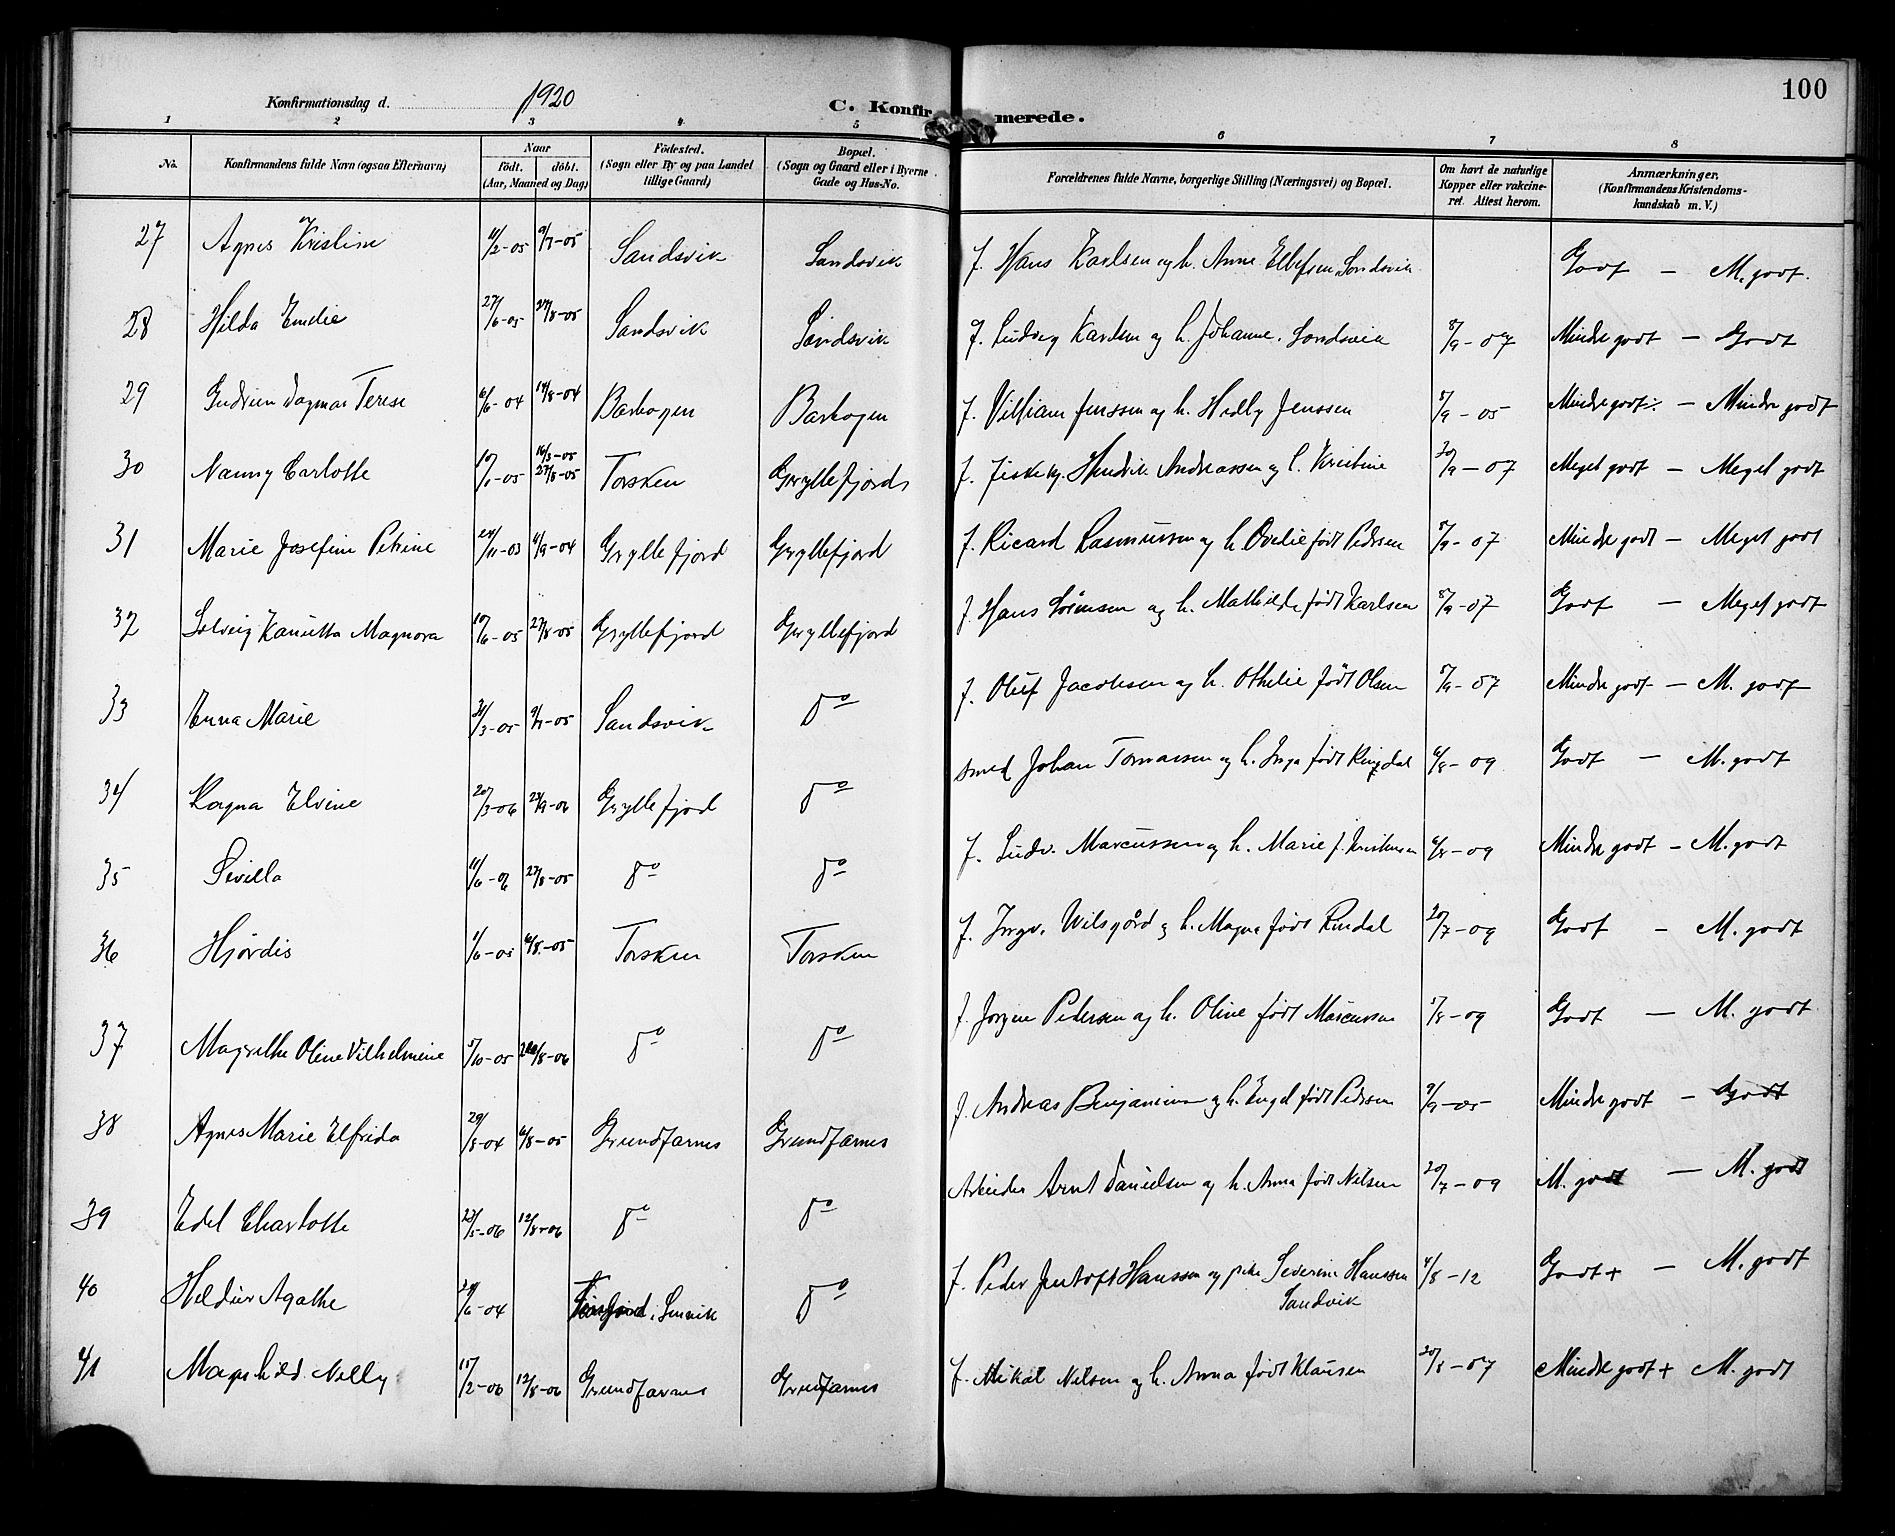 100
Konfirmationsdag d. 1920
C. Konfirmerede.
1 2 3 4 5 6 7 8
No. Konfirmandens fulde Navn (ogsaa Efternavn) Naar født. døbt. (Aar, Maaned og Dag) Fødested. (Sogn eller By og paa Landet tillige Gaard) Bopæl. (Sogn og Gaard eller i Byerne Gade og Hus-No. Forældrenes fulde Navne, borgerlige Stilling (Næringsvei) og Bopæl. Om havt de naturlige Kopper eller vakcineret. Attest herom. Anmærkninger. (Konfirmandens Kristendomskundskab m. V.)
27 Agnes Kristine 4/2-05 9/7-05 Sandsvik Sandsvik f. Hans Karlsen og h. Anne Sandsvik Godt – M. godt.
28 Hilda Emelie 27/6-05 27/8-05 Sandsvik Sandsvik f. Ludvig Karlsen og h. Johanne. Sandsvik 8/9-07 Mindre godt – Godt
29 Gudrun Dagmar Terese 6/6-04 14/8-04 Barhogen Barhogen f. Villiam Jenssen og h. Hedly Jenssen 8/9-05 Mindre godt – Mindre godt
30 Nanny Carlotte 10/1-05 16/3-05 27/8-05 Torsken Gryllefjord f. Hendrik Andreassen og h. Kristine 20/9-07 Meget godt – Meget godt
31 Marie Josefine Petrine 24/11-03 4/9-04 Gryllefjord Gryllefjord f. Ricard Rasmussen og h. Ovelie født Pedersen 8/9-07 Mindre godt – Meget godt
32 Solveig Magnora 10/6-05 27/8-05 Gryllefjord Gryllefjord f. Hans Sørensen og h. Mathilde født Karlsen 8/9-07 Godt – Meget godt
33 Enna Marie 31/3-05 9/7-05 Sandsvik do f. Oluf Jacobsen og h. Othelie født Olsen 8/9-07 Mindre godt – M. godt
34 Ragna Elvine 20/3-06 23/9-06 Gryllefjord do smed Johan Tomassen og h. Inga født Ringdal 6/8-09 Godt – M. godt
35 Sivilla 11/6-06 27/8-05 do do f. Ludv. Marcussen og h. Marie f. Kristensen 6/8-09 Mindre godt – M. godt
36 Hjørdis 1/6-05 6/8-05 Torsken Torsken f. Ingv. Wilsgård og h. Magna født Rindal 20/7-09 Godt – M. godt
37 Magrethe Oline Vilhelmine 5/10-05 /8-06 do do f. Jørgen Pedersen og h. Oline født Marcussen 1/8-09 Godt – M. godt
38 Agnes Marie Elfrida 29/8-04 6/8-05 Grundfarnes Grundfarnes f. Andreas Benjaminsen og h. Engel født Pedersen 9/9-05 Mindre godt – Godt
39 Edel Charlotte 23/5-06 12/8-06 do do Arbeider Arnt Danielsen og h. Anna født Nilsen 20/7-09 M. godt – M. godt
40 Heldur Agathe 29/6-04 do f. Peder Jentoft Hanssen og pike Severine Hanssen Sandvik 4/8-12 Godt + – M. godt
41 Magnhild Nelly 15/2-06 12/8-06 Grundfarnes Grundfarnes f. Mikal Nilsen og h. Anna født Klausen 20/8-07 Mindre godt + M. godt